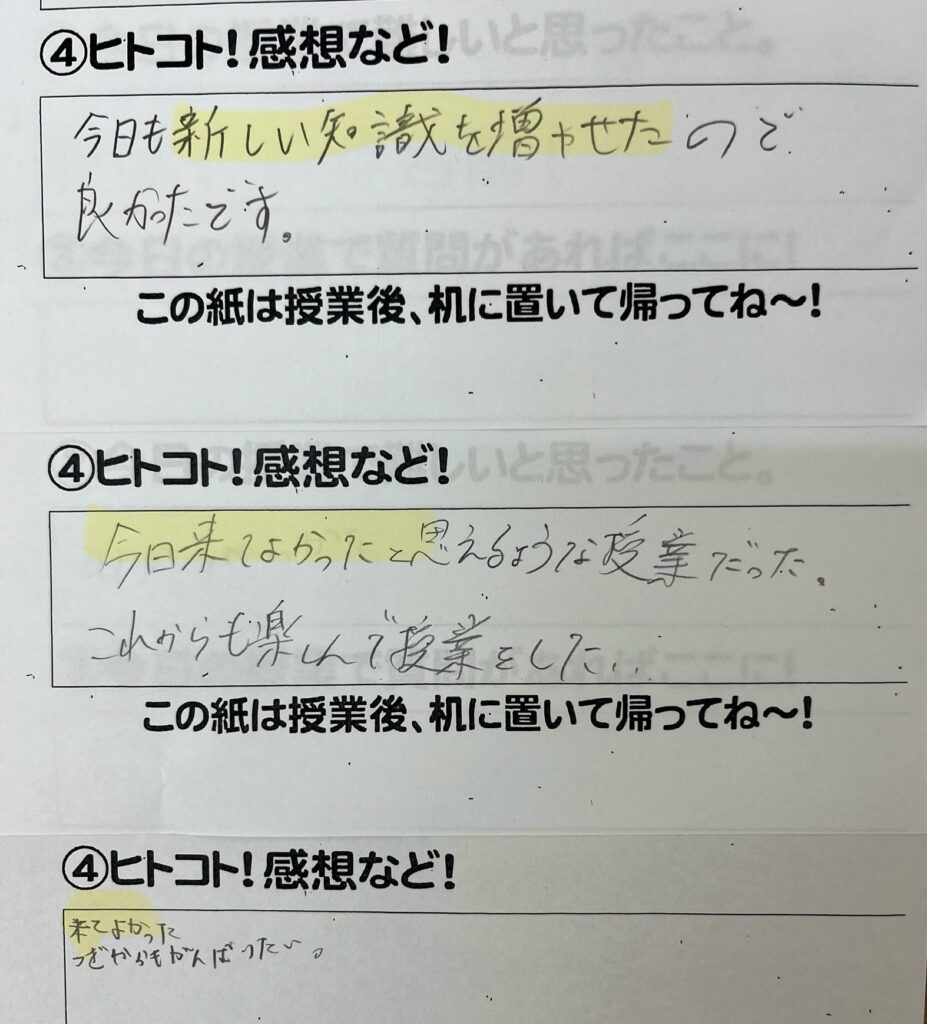 ④ヒトコト！感想など！
今日も新しい知識を増やせたので
良かったです。
この紙は授業後、机に置いて帰ってね〜！
④ヒトコト！感想など！
今日来てよかったと思えるような授業だった。
これからも楽しんで授業をしたい。
この紙は授業後、机に置いて帰ってね〜！
④ヒトコト！感想など！
来てよかった
つぎからもがんばりたい。